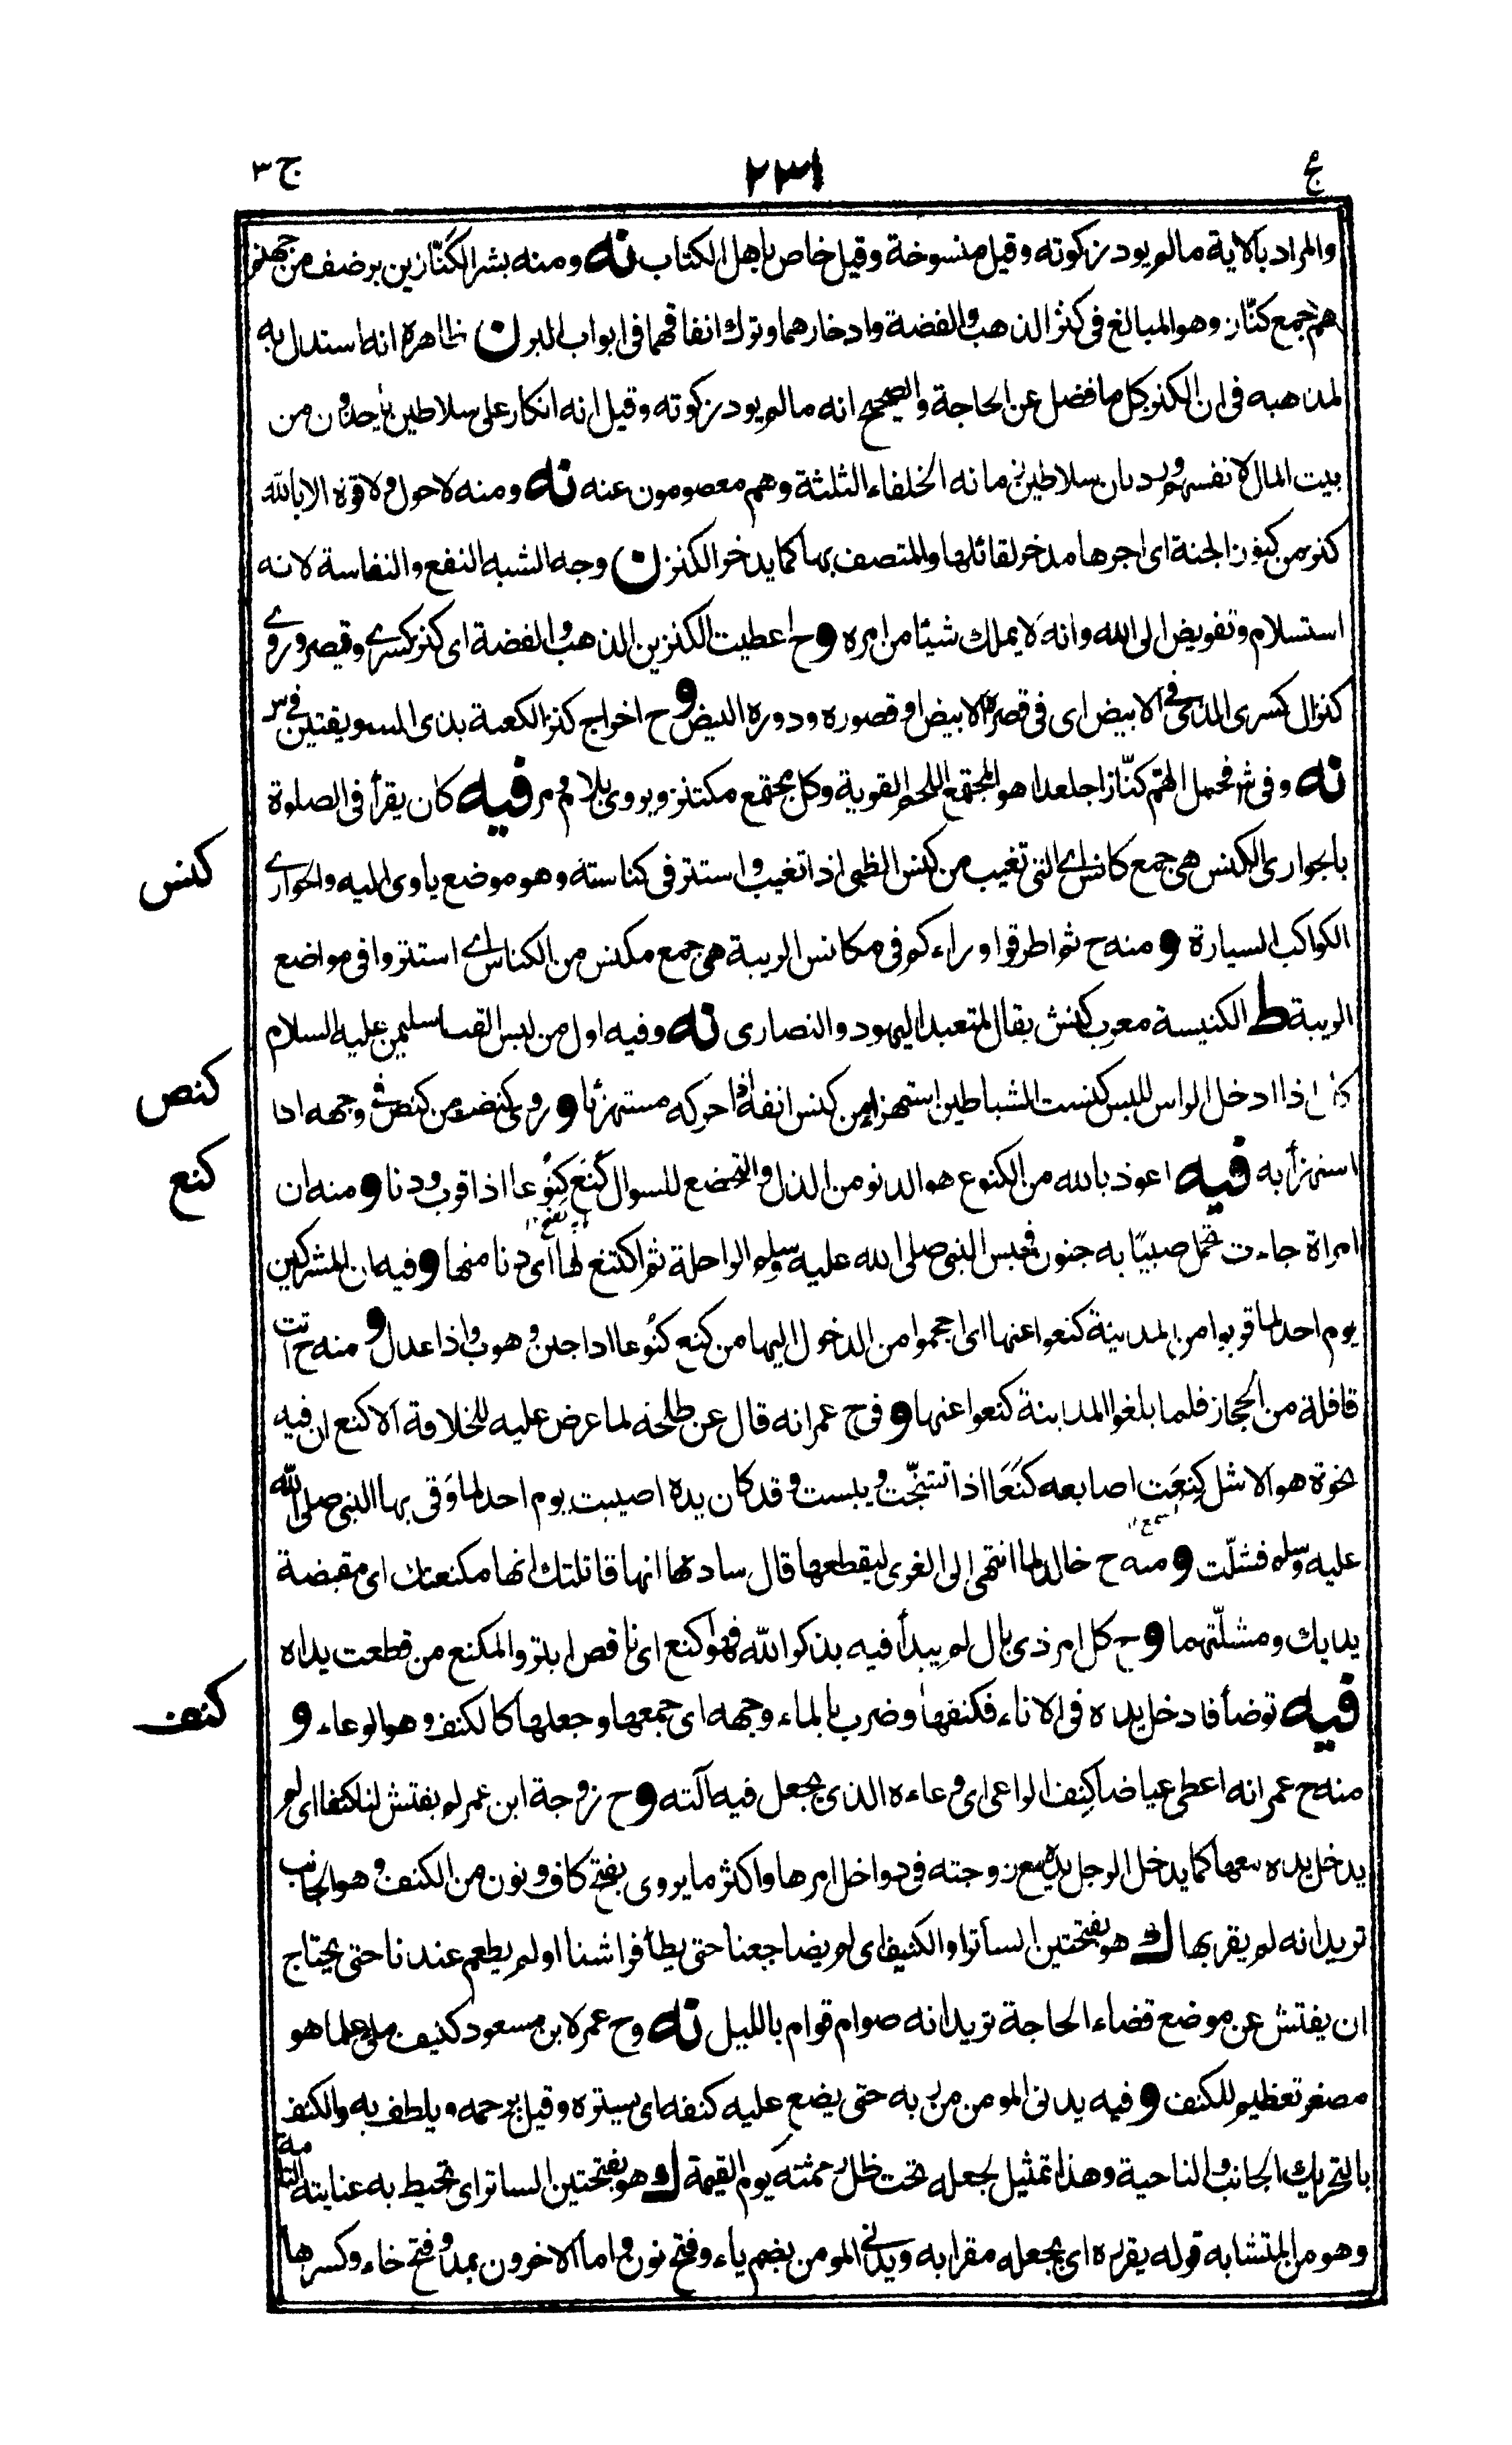 ج ٣
٢٣١
والمراد بالاية مالم يود زكوته وقيل منسوخة وقيل خاص باهل الكتاب نه ومنه بشر الكنّازين برضف من جهنم
هم جمع كنّاز وهو المبالغ فى كنز الذهب والفضة وادخارهما وترك انفاقهما فى ابواب البر ن ظاهره انه استدل به
لمذهبه فى ان الكنز كل ما فضل عن الحاجة والصحيح انه مالم يود زكوته وقيل انه انكار على سلاطين ياخذون من
بيت المال لانفسهم ويرد بان سلاطين زمانه الخلفاء الثلثة وهم معصومون عنه نه ومنه لا حول ولا قوة الا بالله
كنز من كنوز الجنة اى اجرها مدخر لقائلها والمتصف بها كما يدخر الكنز ن وجه الشبه النفع والنفاسة لانه
استسلام وتفويض الى الله وانه لا يملك شيئا من امره وح اعطيت الكنزين الذهب والفضة اى كنز كسرے وقيصر وروے
كنز ال كسرى الذى فى الابيض اى فى قصره الابيض او قصوره ودوره البيض وح اخراج كنز الكعبة بذى السويقتين فى س
نه وفى ش فحمل الهمّ كنّازا جلعدا هو المجتمع اللحم القوية وكل مجتمع مكتنز ويروى بلام ومر فيه كان يقرأ فى الصلوة
كنس
بالجوارى الكنس هى جمع كانس اے التى تغيب من كنس الظبى اذا تغيب واستتر فى كناسته وهو موضع ياوى اليه والجوارے
الكواكب السيارة ومنه ح ثم اطرقوا وراءكم فى مكانس الريبة هى جمع مكنس من الكناس اے استتروا فى مواضع
الريبة ط الكنيسة معرب كنش يقال لمتعبد اليهود والنصارى نه وفيه اول من لبس القبا سليمن عليه السلام
كنص
كان اذا ادخل الراس للبس كنست الشياطين استهزاء من كنس انفه اذا حركه مستهزئا وروى كنصت من كنص فى وجهه اذا
كنع
استهزأ به فيه اعوذ بالله من الكنوع هو الدنو من الذل والتخضع للسوال كَنَع كُنُوعا اذا قرب ودنا ومنه ان
امراة جاءت تحمل صبيّا به جنون فحبس النبى صلى الله عليه وسلم الراحلة ثم اكتنع لها اى دنا منها وفيه ان المشركين
يوم احد لما قربوا من المدينة كنعوا عنها اى احجموا من الدخول اليها من كنع كنُوعا اذا جبن وهرب واذا عدل ومنه ح اتت
قافلة من الحجاز فلما بلغوا المدينة كنعوا عنها وفى ح عمر انه قال عن طلحة لما عرض عليه للخلافة الاكنع ان فيه
نخوة هو الاشل كَنِعَت اصابعه كَنَعَا اذا تشنّجت ويبست وقد كان يده اصيبت يوم احد لما وَقى بها النبى صلى الله
عليه وسلم فشلّت ومنه ح خالد لما انتهى الى الغرى ليقطعها قال سادنها انها قاتلتك انها مكنعتك اى مقبضة
يديك ومشلّتهما وح كل امر ذى بال لم يبدأ فيه بذكر الله فهو اكنع اى ناقص ابتر والمكنع من قطعت يداه
كنف
فيه توضأ فادخل يده فى الاناء فكنفها وضرب بالماء وجهه اى جمعها وجعلها كالكنف وهو الوعاء و
منه ح عمر انه اعطى عياضا كِنف الراعى اى وعاءه الذى يجعل فيه آلته وح زوجة ابن عمر لم يفتش لنا كنفا اى لم
يدخل يده معها كما يدخل الرجل يده مع زوجته فى دواخل امرها واكثر ما يروى بفتح كاف ونون من الكنف وهو الجانب
تريد انه لم يقربها ك هو بفتحتين الساتر او الكنيف اى لم يضاجعنا حتى يطأ فراشنا او لم يطعم عندنا حتى يحتاج
ان يفتش عن موضع قضاء الحاجة تريد انه صوام قوام بالليل نه وح عمر لابن مسعود كنيف ملئ علما هو
مصغر تعظيم للكنف وفيه يدنى المومن من ربه حتى يضع عليه كنفه اى يستره وقيل يرحمه ويلطف به والكنف
بالتحريك الجانب والناحية وهذا تمثيل لجعله تحت ظل رحمته يوم القيمة ك هو بفتحتين الساتر اى تحيط به عنايته التامة
وهو من المتشابه قوله يقرره اى يجعله مقرا به ويدنى المومن بضم ياء وفتح نون واما الاخرون بمد وفتح خاء وكسرها